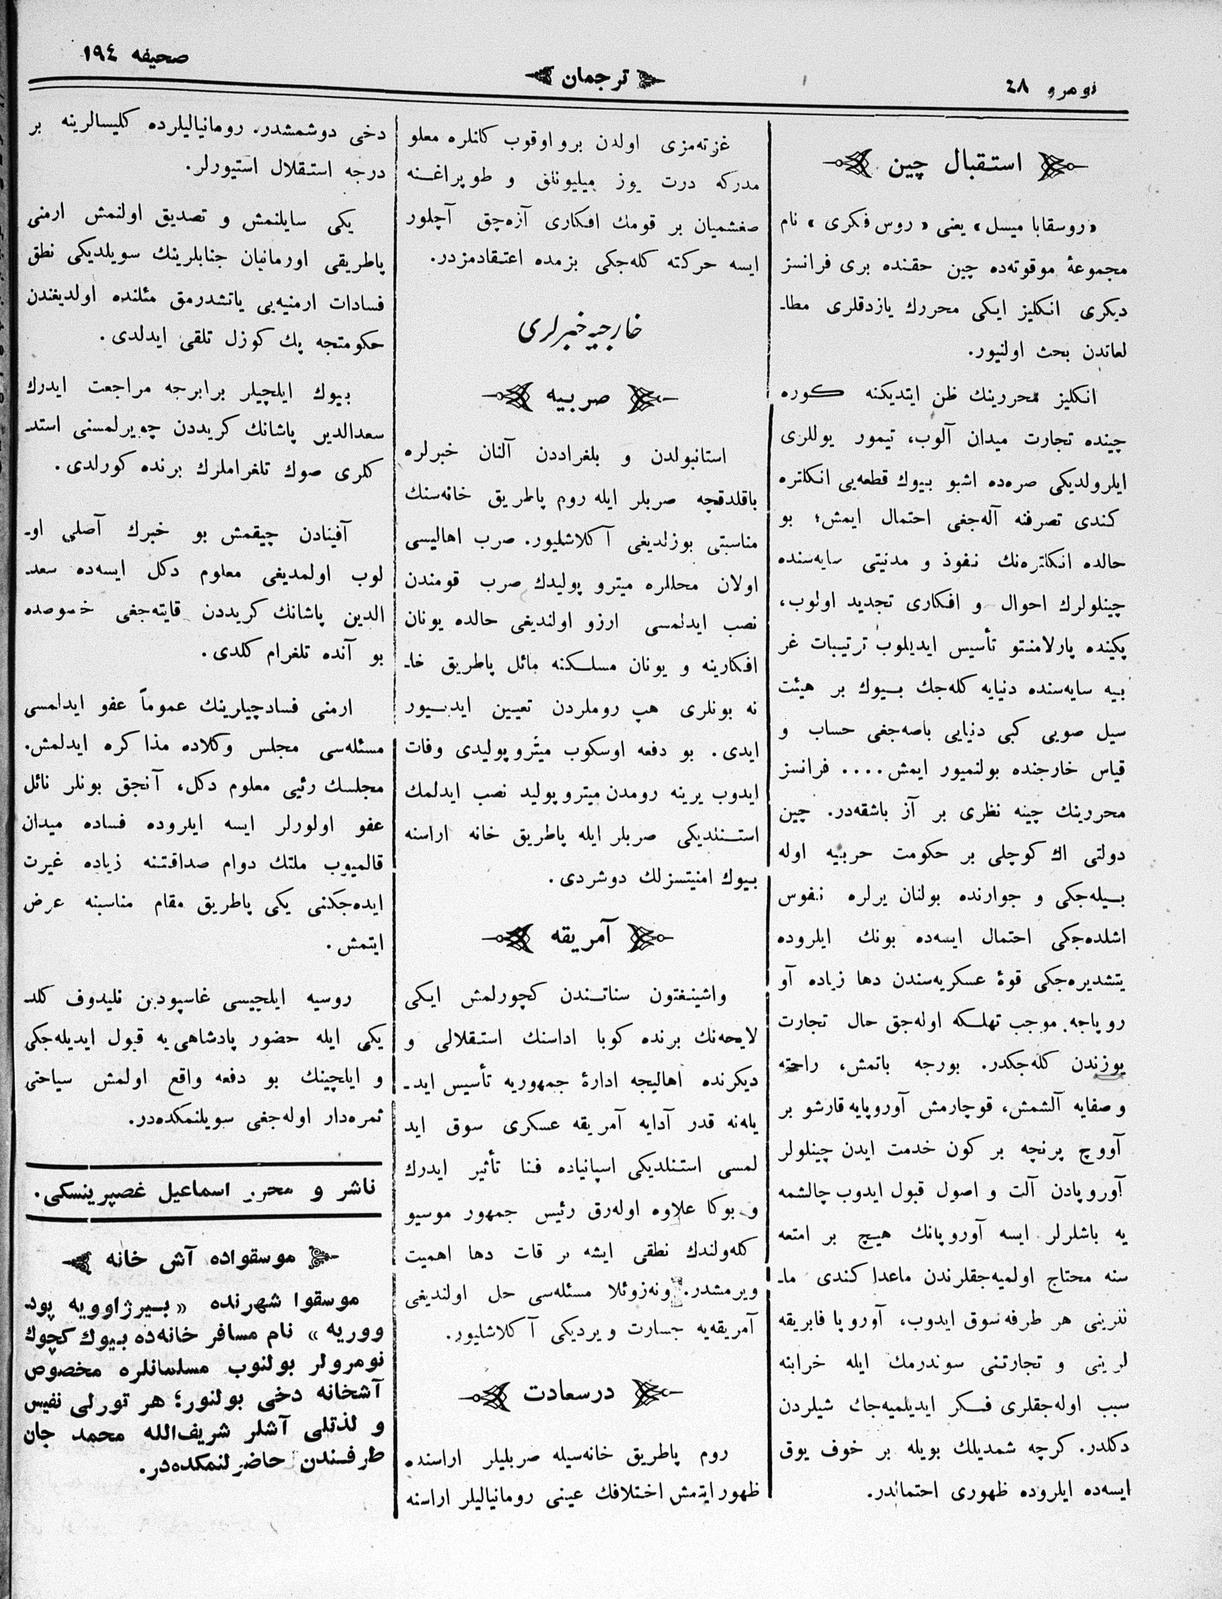 نومرو ٤٨
ترجمان
صحیفه ١٩٤
استقبال چین
«روسقایا میسل» یعنی «روس فكری» نام
مجموعۀ موقوته‌ده چین حقنده بری فرانسز
دیكری انكلیز ایكی محررك یازدقلری مطا-
لعاتدن بحث اولنیور.
انكلیز محررینك ظن ایتدیكنه كوره
چینده تجارت میدان آلوب، تیمور یوللری
ایلرولدیكی صره‌ده اشبو بیوك قطعه‌یی انكلتره
كندی تصرفنه آله‌جغی احتمال ایمش؛ بو
حالده انكلتره‌نك نفوذ و مدنیتی سایه‌سنده
چینلولرك احوال و افكاری تجدید اولوب،
پكینده پارلامنتو تأسیس ایدیلوب ترتیبات غر
بیه سایه‌سنده دنیایه كله‌جك بیوك بر هیئت
سیل صویی كبی دنیایی باصه‌جغی حساب و
قیاس خارجنده بولنمیور ایمش.... فرانسز
محررینك چینه نظری بر آز باشقه‌در. چین
دولتی اك كوچلی بر حكومت حربیه اوله
بیله‌جكی و جوارنده بولنان یرلره نفوس
اشلده‌جكی احتمال ایسه‌ده بونك ایلروده
یتشدیره‌جكی قوۀ عسكریه‌سندن دها زیاده آو
روپاجه موجب تهلكه اوله‌جق حال تجارت
یوزندن كله‌جكدر. بورجه باتمش، راحته
و صفایه آلشمش، قوجارمش آوروپایه قارشو بر
آووچ پرنچه بر كون خدمت ایدن چینلولر
آوروپادن آلت و اصول قبول ایدوب چالشمه
یه باشلرلر ایسه آوروپانك هیچ بر امتعه
سنه محتاج اولمیه‌جقلرندن ماعدا كندی ما-
لرینی هر طرفه سوق ایدوب، آوروپا فابریقه
لرینی و تجارتنی سوندرمك ایله خرابنه
سبب اوله‌جقلری فكر ایدیلمیه‌جك شیلردن
دكلدر. كرچه شمدیلك بویله بر خوف یوق
ایسه‌ده ایلروده ظهوری احتمالدر.
غزته‌مزی اولدن برو اوقوب كلنلره معلو
مدركه درت یوز میلیونلق و طوپراغنه
صغشمیان بر قومك افكاری آزه‌چق آچلور
ایسه حركته كله‌جكی بزمده اعتقادمزدر.
خارجیه خبرلری
صربیه
استانبولدن و بلغراددن آلنان خبرلره
باقلدقچه صربلر ایله روم پاطریق خانه‌سنك
مناسبتی بوزلدیغی آكلاشلیور. صرب اهالیسی
اولان محللره میتروپولیدك صرب قومندن
نصب ایدلمسی ارزو اولندیغی حالده یونان
افكارینه و یونان مسلكنه مائل پاطریق خا-
نه بونلری هپ روملردن تعیین ایدییور
ایدی. بو دفعه اوسكوب میتروپولیدی وفات
ایدوب یرینه رومدن میتروپولید نصب ایدلمك
استنلدیكی صربلر ایله پاطریق خانه اراسنه
بیوك امنیتسزلك دوشردی.
آمریقه
واشینغتون سناتندن كچورلمش ایكی
لایحه‌نك برنده كوبا اداسنك استقلالی و
دیكرنده اهالیجه ادارۀ جمهوریه تأسیس اید-
یله‌نه قدر آدایه آمریقه عسكری سوق اید
لمسی استنلدیكی اسپانیاده فنا تأثیر ایدرك
و بوكا علاوه اوله‌رق رئیس جمهور موسیو
كله‌ولندك نطقی ایشه بر قات دها اهمیت
ویرمشدر. ونه‌زوئلا مسئله‌سی حل اولندیغی
آمریقه‌یه جسارت ویردیكی آكلاشلیور.
درسعادت
روم پاطریق خانه‌سیله صربلیلر اراسنده
ظهور ایتمش اختلافك عینی رومانیالیلر اراسنه
دخی دوشمشدر. رومانیالیلرده كلیسالرینه بر
درجه استقلال استیورلر.
یكی سایلنمش و تصدیق اولنمش ارمنی
پاطریقی اورمانیان جنابلرینك سویلدیكی نطق
فسادات ارمنیه‌یی یاتشدرمق مئلنده اولدیغندن
حكومتجه پك كوزل تلقی ایدلدی.
بیوك ایلچیلر برابرجه مراجعت ایدرك
سعدالدین پاشانك كریددن چویرلمسنی استد-
كلری صوك تلغراملرك برنده كورلدی.
آفینادن چیقمش بو خبرك آصلی او-
لوب اولمدیغی معلوم دكل ایسه‌ده سعد-
الدین پاشانك كریددن قایته‌جغی خصوصده
بو آنده تلغرام كلدی.
ارمنی فسادچیلرینك عموماً عفو ایدلمسی
مسئله‌سی مجلس وكلاده مذاكره ایدلمش.
مجلسك رئیی معلوم دكل، آنجق بونلر نائل
عفو اولورلر ایسه ایلروده فساده میدان
قالمیوب ملتك دوام صداقتنه زیاده غیرت
ایده‌جكنی یكی پاطریق مقام مناسبنه عرض
ایتمش.
روسیه ایلچیسی غاسپودین نلیدوف كلد-
یكی ایله حضور پادشاهی‌یه قبول ایدیله‌جكی
و ایلچینك بو دفعه واقع اولمش سیاحتی
ثمره‌دار اوله‌جغی سویلنمكده‌در.
ناشر و محرر اسماعیل غصپرینسكی.
موسقواده آش خانه
موسقوا شهرنده «بیرژاوویه پود
ووریه» نام مسافر خانه‌ده بیوك كچوك
نومرولر بولنوب مسلمانلره مخصوص
آشخانه دخی بولنور؛ هر تورلی نفیس
و لذتلی آشلر شریف‌الله محمد جان
طرفسندن حاضرلنمكده‌در.